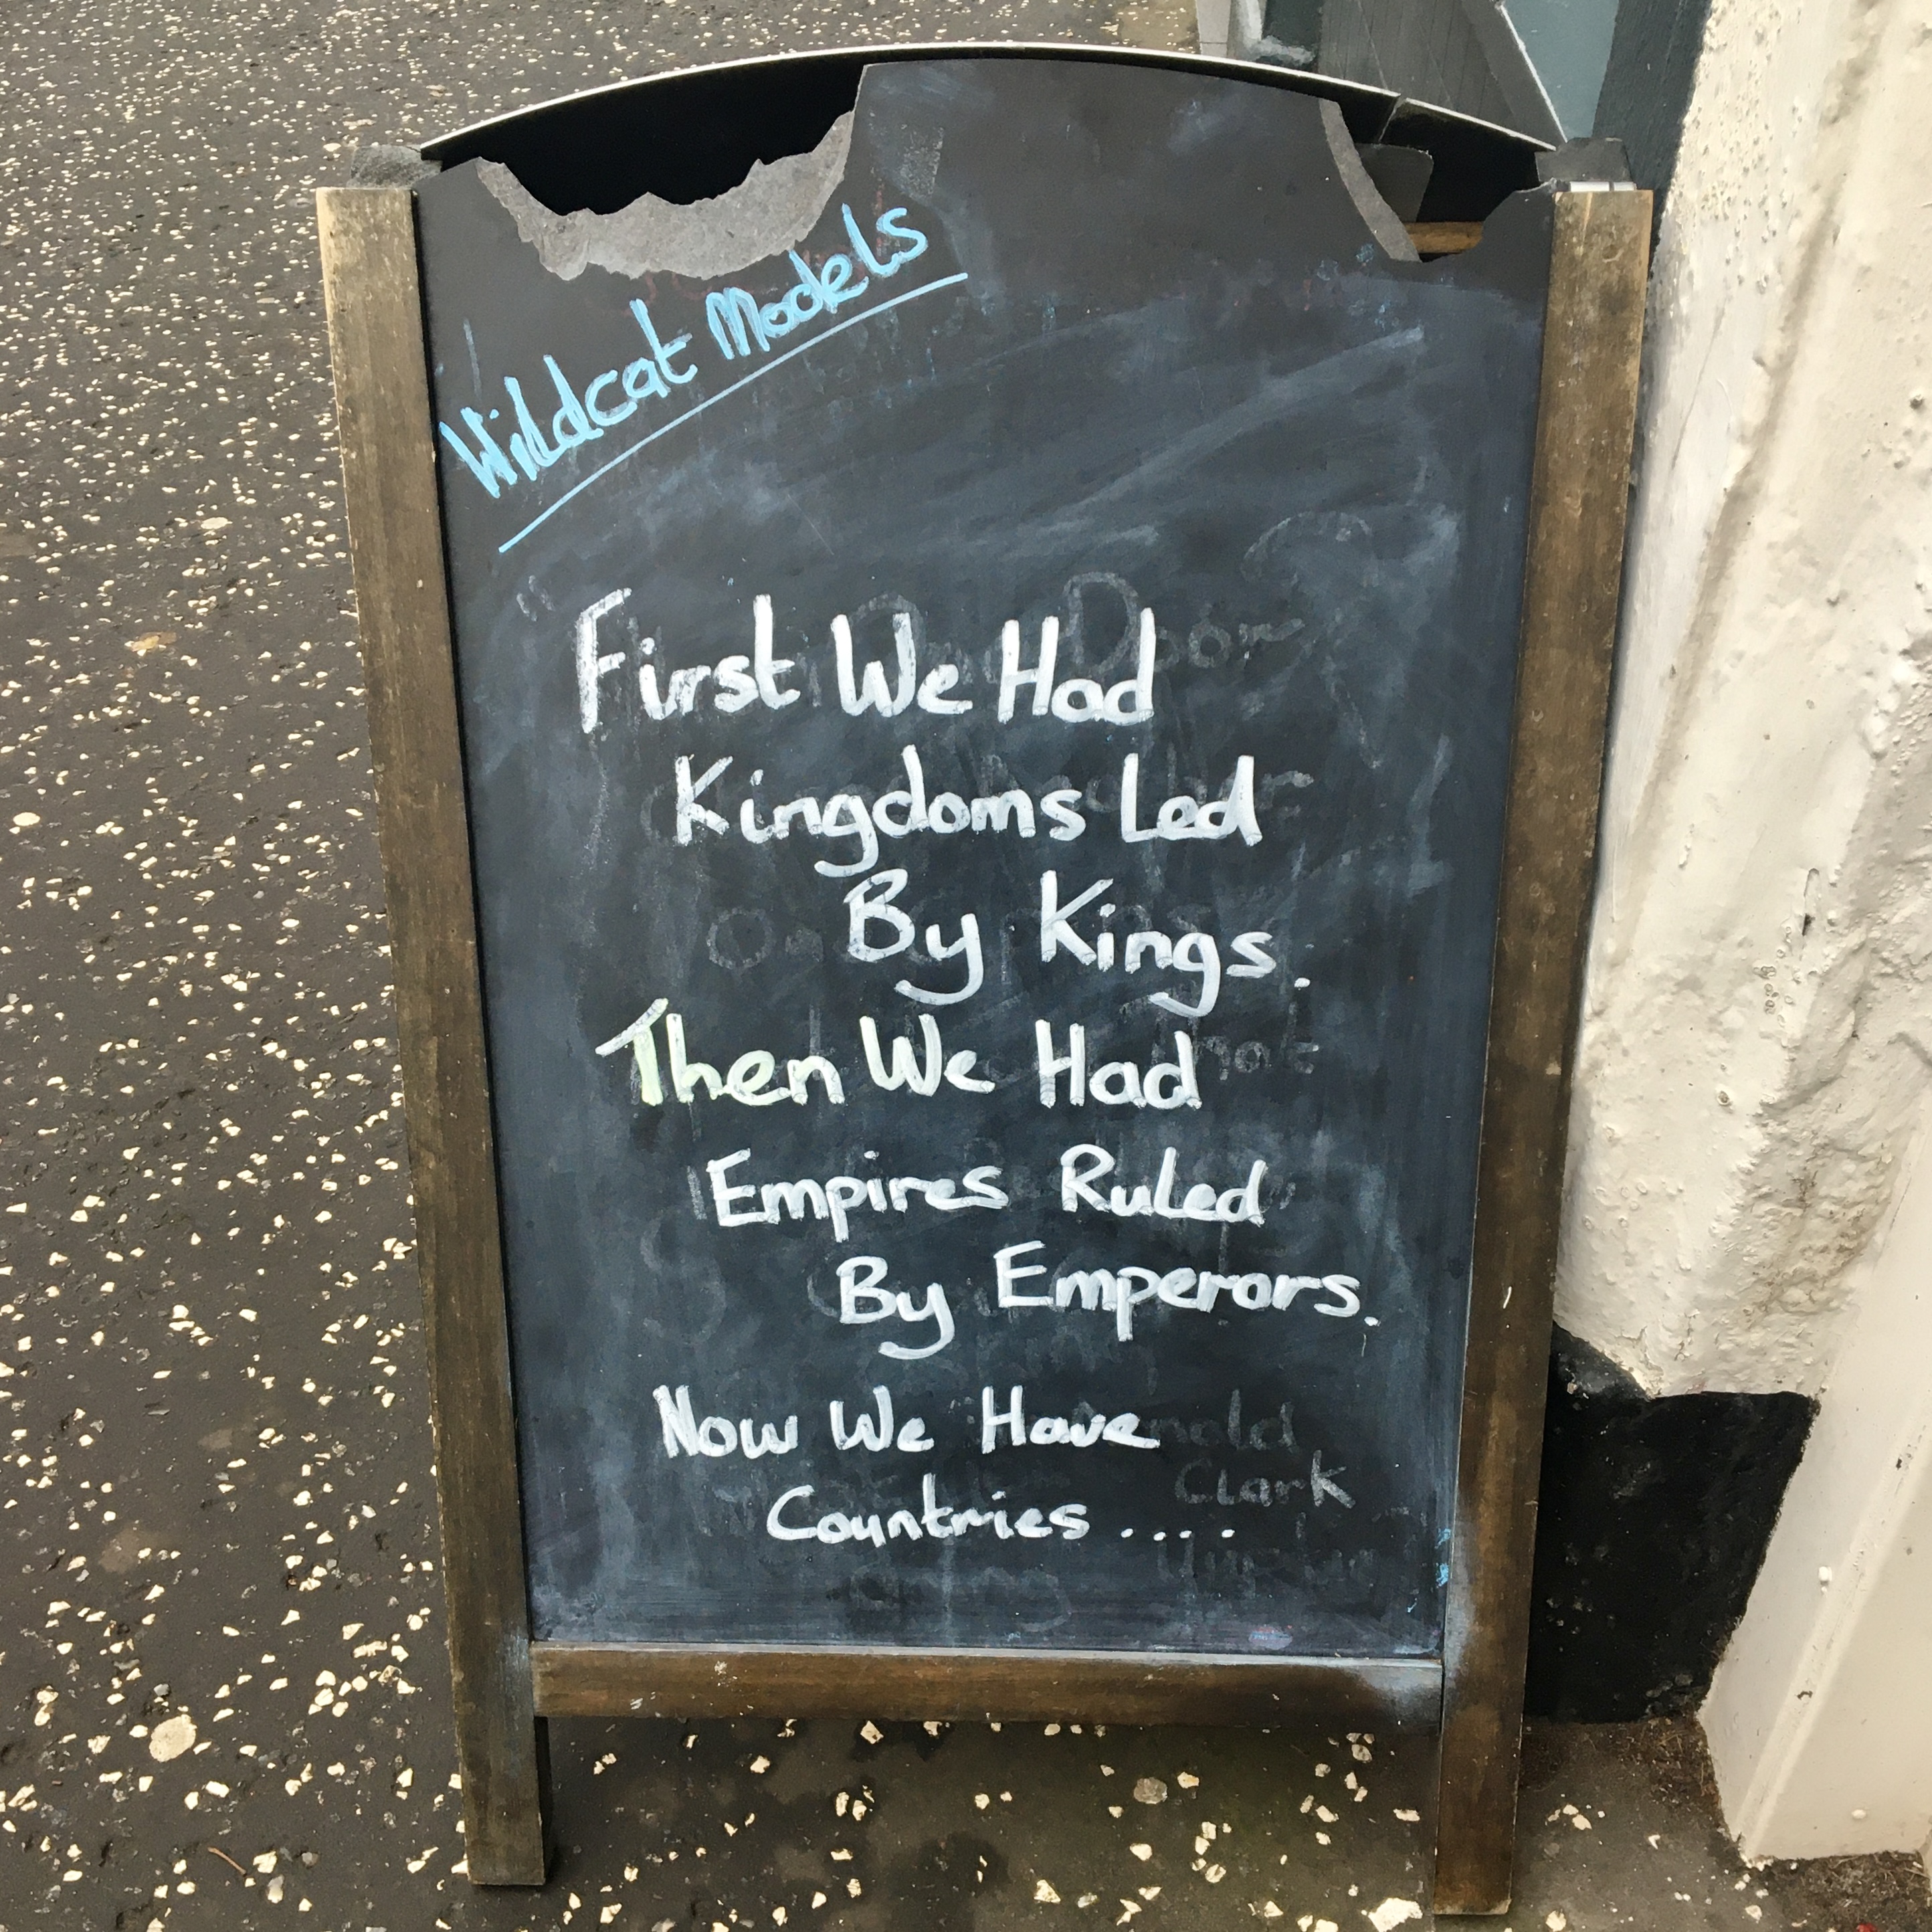 Wildcat Models
First We Had
Kingdoms Led
By Kings.
Then We Had
Empires Ruled
By Emperors.
Now We Have
Countries ....
Clark